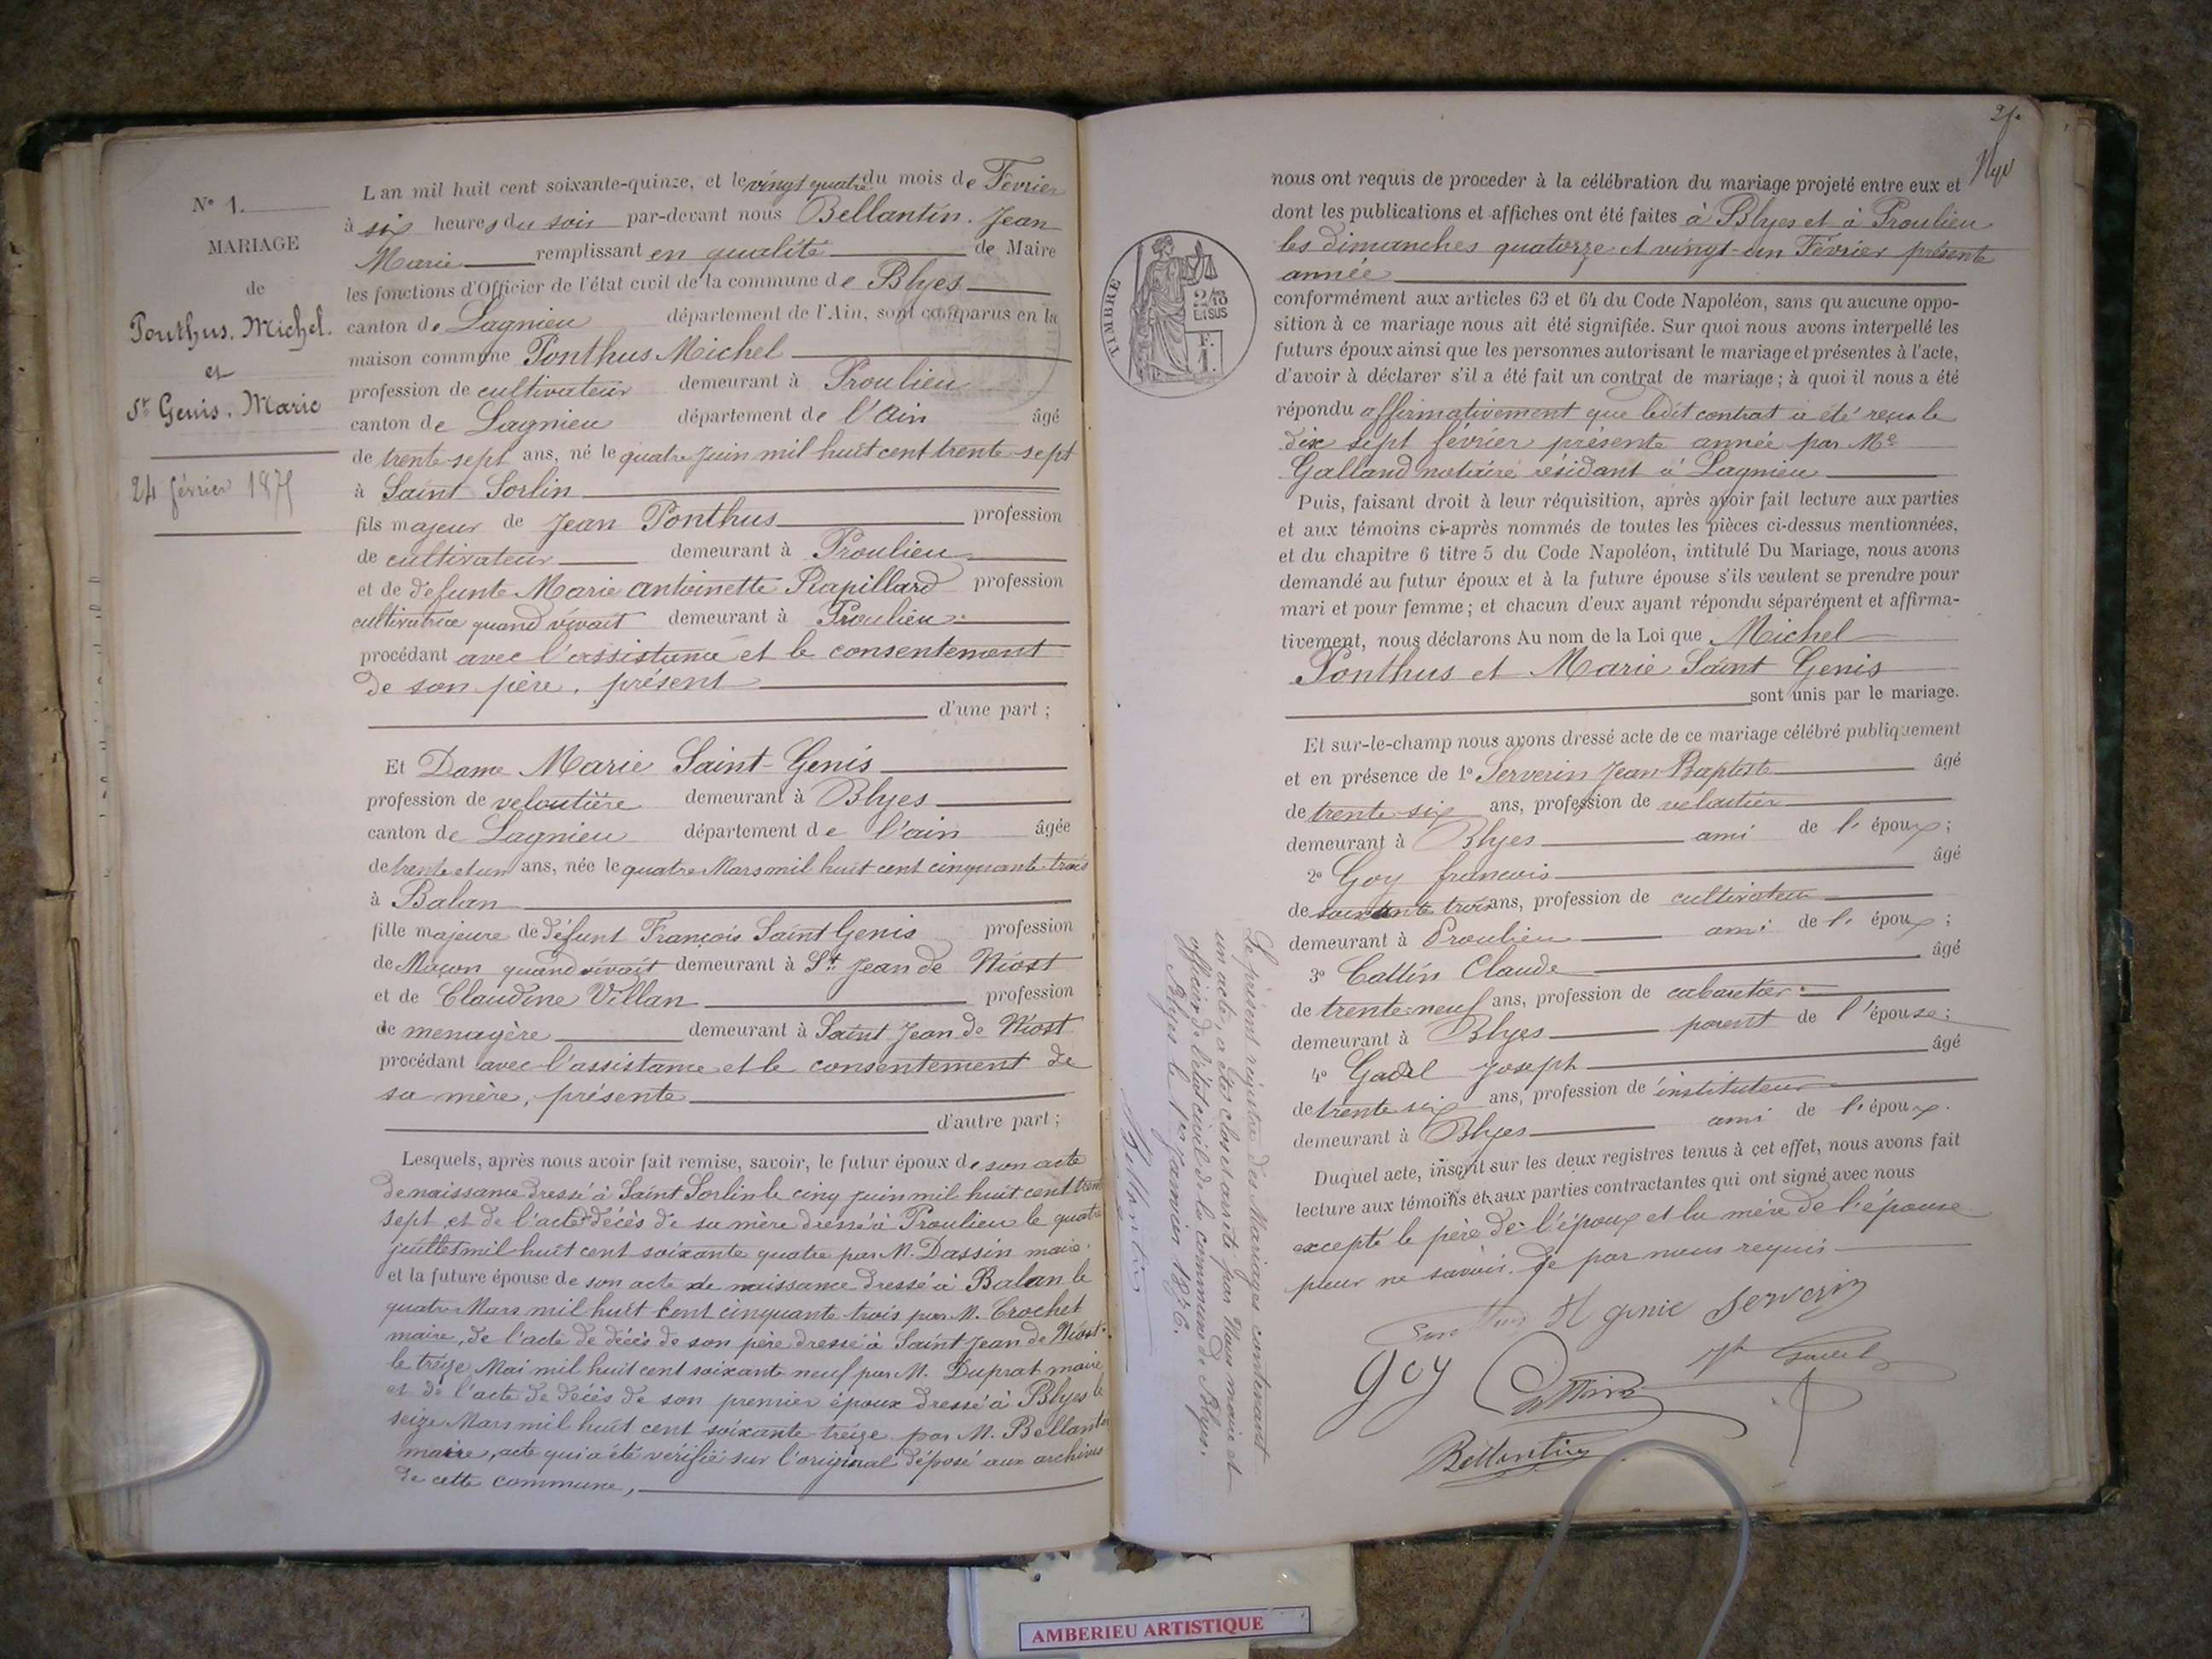 N° 1.
MARIAGE
de
Ponthus. Michel.
et
St Genis. Marie
24 février 1875
L'an mil huit cent soixante-quinze, et le vingt quatre du mois de Fevrier
à six heures du soir par-devant nous Bellantin. Jean
Marie remplissant en qualité de Maire
les fonctions d'Officier de l'état civil de la commune de Blyes
canton de Lagnieu département de l'Ain, sont comparus en la
maison commune Ponthus Michel
profession de cultivateur demeurant à Proulieu
canton de Lagnieu département de l'Ain âgé
de trente sept ans, né le quatre Juin mil huit cent trente sept
à Saint Sorlin
fils majeur de Jean Ponthus profession
de cultivateur demeurant à Proulieu
et de défunte Marie antoinette Rapillard profession
cultivatrice quand vivait demeurant à Proulieu
procédant avec l'assistance et le consentement
de son père, présent
d'une part ;
Et Dame Marie Saint-Genis
profession de veloutière demeurant à Blyes
canton de Lagnieu département de l'ain âgée
de trente et un ans, née le quatre Mars mil huit cent cinquante trois
à Balan
fille majeure de défunt François Saint Genis profession
de Maçon quand vivait demeurant à St Jean de Niost
et de Claudine Villan profession
de menagère demeurant à Saint Jean de Niost
procédant avec l'assistance et le consentement de
sa mère, présente
d'autre part ;
Lesquels, après nous avoir fait remise, savoir, le futur époux de son acte
de naissance dressé à Saint Sorlin le cinq juin mil huit cent trente
sept et de l'acte décès de sa mère dressé à Proulieu le quatre
juillet mil huit cent soixante quatre par M. Dassin maire
et la future épouse de son acte de naissance dressé à Balan le
quatre Mars mil huit cent cinquante trois par M. Crochet
maire, de l'acte de décès de son père dressé à Saint Jean de Niost
le treize Mai mil huit cent soixante neuf par M. Duprat maire
et de l'acte de décès de son premier époux dressé à Blyes le
seize Mars mil huit cent soixante treize par M. Bellantin
maire, acte qui a été vérifié sur l'original déposé aux archives
de cette commune,
TIMBRE
2/10
EN SUS
F.
1.
nous ont requis de proceder à la célébration du mariage projeté entre eux et
dont les publications et affiches ont été faites à Blyes et à Proulieu
les dimanches quatorze et vingt-un Février présente
année
conformément aux articles 63 et 64 du Code Napoléon, sans qu'aucune oppo-
sition à ce mariage nous ait été signifiée. Sur quoi nous avons interpellé les
futurs époux ainsi que les personnes autorisant le mariage et présentes à l'acte,
d'avoir à déclarer s'il a été fait un contrat de mariage ; à quoi il nous a été
répondu affirmativement que ledit contrat a été reçu le
dix sept février présente année par Me
Galland notaire résidant à Lagnieu
Puis, faisant droit à leur réquisition, après avoir fait lecture aux parties
et aux témoins ci-après nommés de toutes les pièces ci-dessus mentionnées,
et du chapitre 6 titre 5 du Code Napoléon, intitulé Du Mariage, nous avons
demandé au futur époux et à la future épouse s'ils veulent se prendre pour
mari et pour femme ; et chacun d'eux ayant répondu séparément et affirma-
tivement, nous déclarons Au nom de la Loi que Michel
Ponthus et Marie Saint Genis
sont unis par le mariage.
Et sur-le-champ nous avons dressé acte de ce mariage célébré publiquement
et en présence de 1° Serverin Jean Baptiste âgé
de trente six ans, profession de veloutier
demeurant à Blyes ami de l'époux ;
2° Goy francois âgé
de soixante trois ans, profession de cultivateur
demeurant à Proulieu ami de l'époux ;
3° Cattin Claude âgé
de trente-neuf ans, profession de cabaretier
demeurant à Blyes parent de l'épouse ;
4° Gadel Joseph âgé
de trente six ans, profession de instituteur
demeurant à Blyes ami de l'époux.
Duquel acte, inscrit sur les deux registres tenus à cet effet, nous avons fait
lecture aux témoins et aux parties contractantes qui ont signé avec nous
excepté le père de l'époux et la mère de l'épouse
pour ne savoir. De par nous requis
St genie Serverin
goy Cattin
Bellantin
Le présent registre des Mariages contenant
un acte, a été clos et arrêté par Nous maire et
officier de l'état civil de la commune de Blyes.
Blyes le 1er Janvier 1876.
Bellantin
AMBERIEU ARTISTIQUE